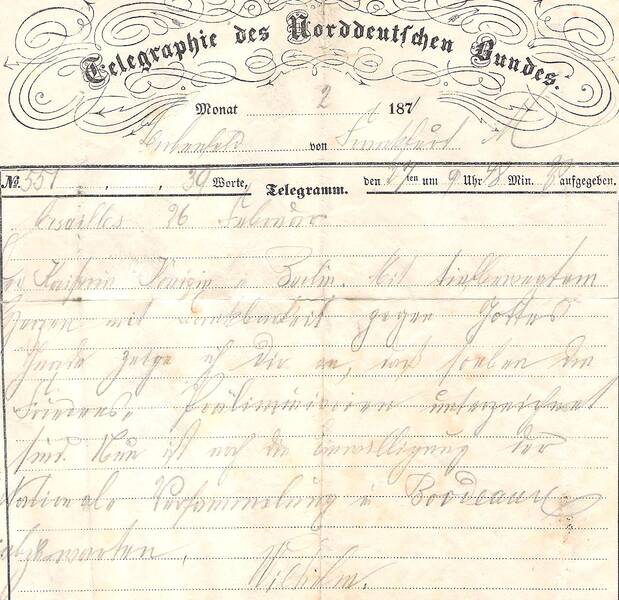 Telegraphie des Norddeutschen Bundes.
Monat 2 1871
Birkenfeld von Frankfurt M
No. 551 , , 39 Worte, Telegramm. den 27ten um 9 Uhr 48 Min. aufgegeben.
Versailles 26 Februar
Kaiserin Königin in Berlin. Mit tiefbewegtem
Herzen mit Dankbarkeit gegen Gottes
Gnade zeige ich Dir an, daß soeben die
Friedens-Präliminarien unterzeichnet
sind. Nun ist noch die Einwilligung der
Nationale Versammelung in Bordeaux
abzuwarten.
Wilhelm.